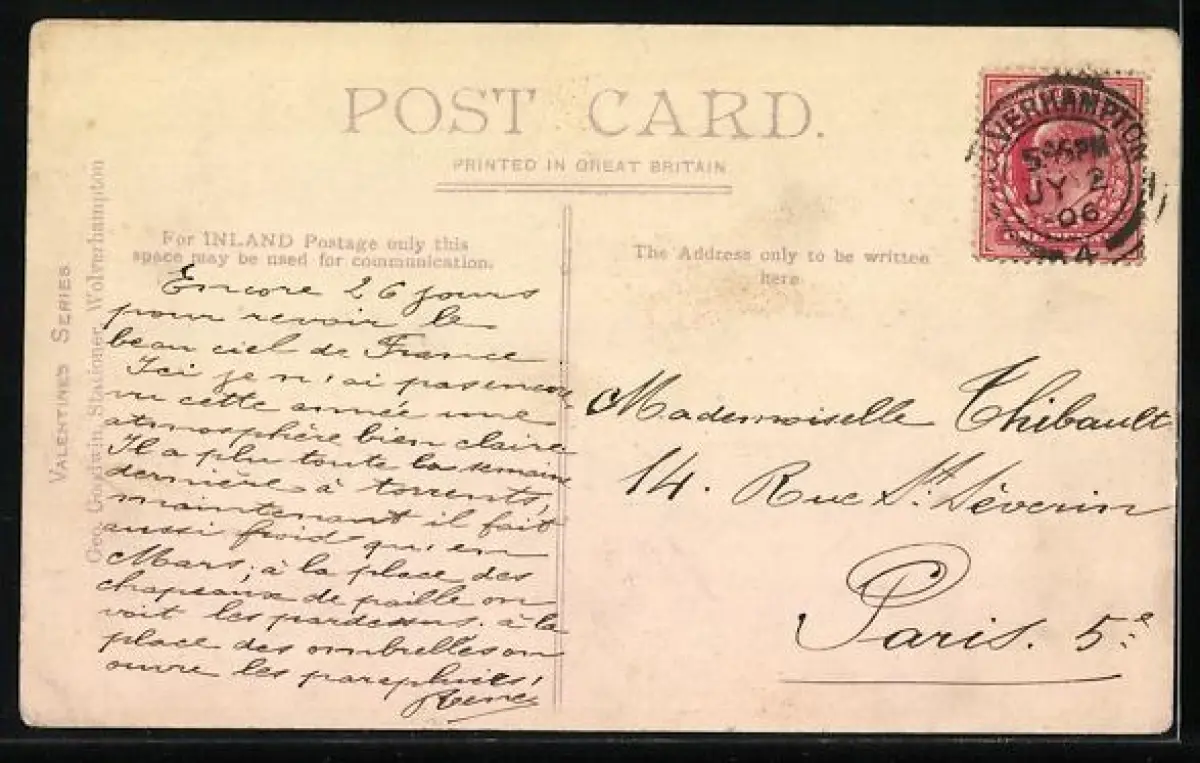 POST CARD.
PRINTED IN GREAT BRITAIN
VALENTINES SERIES
Geo. Goodwin, Stationer, Wolverhampton
For INLAND Postage only this
space may be used for communication.
The Address only to be written
here
WOLVERHAMPTON
PM
JY 2
06
Encore 26 jours
pour revoir le
beau ciel de France
Ici je n'ai pas encore
vu cette année une
atmosphère bien claire
Il a plu toute la semaine
dernière à torrents,
maintenant il fait
aussi froid qu'en
Mars; à la place des
chapeaux de paille on
voit les pardessus. à la
place des ombrelles on
ouvre les parapluies,
Mademoiselle Thibault
14. Rue St. Séverin
Paris. 5e